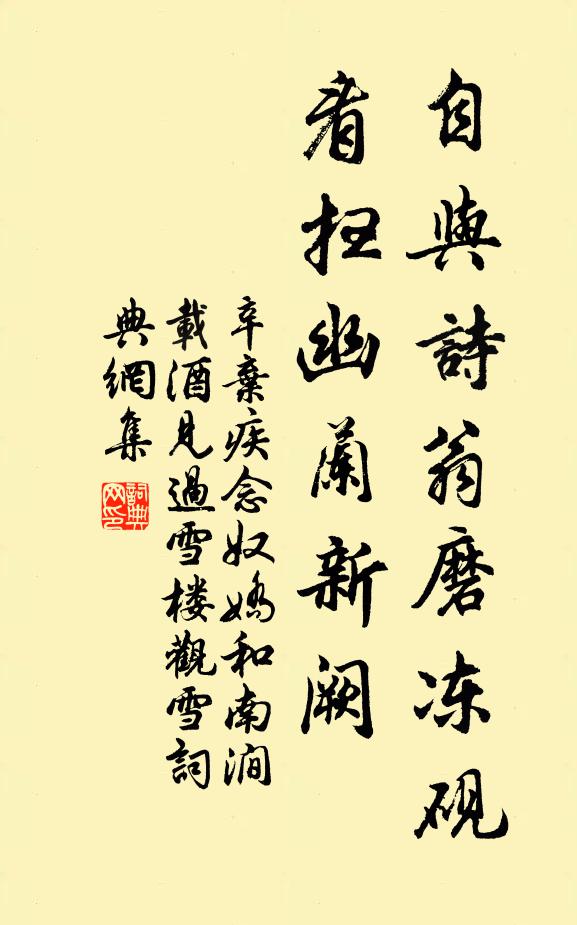 自與詩翁磨冻砚
看扫幽蘭新阕
辛棄疾念奴嬌和南澗
載酒見過雪楼觀雪詞
典網集
詞典
网印